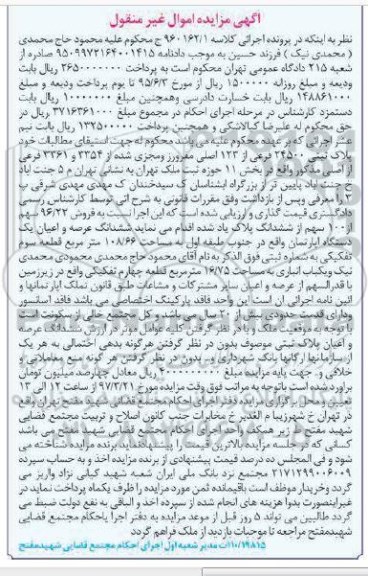 آگهی مزایده اموال غیر منقول
نظر به اینکه در پرونده اجرائی کلاسه ۹۶۰۱۶۲/۱ ج محکوم علیه محمود حاج محمدی
( محمدی نیک ) فرزند حسین به موجب دادنامه ۹۵۰۹۹۷۲۱۶۴۰۰۱۴۱۵ صادره از
شعبه ۲۱۵ دادگاه عمومی تهران محکوم است به پرداخت ۲۶۵۰۰۰۰۰۰۰ ریال بابت
ودیعه و مبلغ روزانه ۱۵۰۰۰۰۰ ریال از مورخ ۹۵/۶/۳ تا یوم پرداخت ودیعه و مبلغ
۱۴۸۸۶۱۰۰۰ ریال بابت خسارت دادرسی وهمچنین مبلغ ۱۰۰۰۰۰۰۰ ریال بابت
دستمزد کارشناس در مرحله اجرای احکام در مجموع مبلغ ۳۷۱۶۳۶۱۰۰۰ ریال در
حق محکوم له علیرضا گیالاشکی و همچنین پرداخت ۱۳۲۵۰۰۰۰۰ ریال بابت نیم
عشر اجرائی که بر عهده محکوم علیه می باشد محکوم له جهت استیفای مطالبات خود
پلاک ثبتی ۲۴۵۰۰ فرعی از ۱۲۳ اصلی مفروز ومجزی شده از ۳۳۵۴ و ۳۳۶۱ فرعی
از اصلی مذکور واقع در بخش ۱۱ حوزه ثبت ملک تهران به نشانی تهران م ۵ جنت آباد
خ جنت آباد پایین تر از بزرگراه آبشناسان ک سیدخندان ک مهدی مهدی شرقی پ
۳ را معرفی وپس از بازداشت وفق مقررات قانونی به شرح آتی توسط کارشناس رسمی
دادگستری قیمت گذاری و ارزیابی شده است که این اجرا نسبت به فروش ۹۶/۲۲ سهم
از ۱۰۰ سهم از ششدانگ پلاک یاد شده اقدام می نماید ششدانگ عرصه و اعیان یک
دستگاه آپارتمان واقع در جنوب طبقه اول به مساحت ۱۰۸/۶۶ متر مربع قطعه سوم
تفکیکی به شماره ثبتی فوق الذکر به نام آقای محمود حاج محمدی محمودی محمدی
نیک ویکباب انباری به مساحت ۱۶/۷۵ مترمربع قطعه چهارم تفکیکی واقع در زیرزمین
با قدرالسهم از عرصه و اعیان سایر مشترکات و مشاعات طبق قانون تملک آپارتمانها و
آئین نامه اجرائی آن است این واحد فاقد پارکینگ اختصاصی می باشد فاقد آسانسور
ودارای قدمت حدودی بیش از ۲۰ سال می باشد و کل مجتمع خالی از سکونت است
با توجه به موقعیت ملک و با در نظر گرفتن کلیه عوامل موثر در ارزش ششدانگ عرصه
و اعیان پلاک ثبتی موصوف بدون در نظر گرفتن هرگونه بدهی احتمالی به هر یک
از سازمانها ارگانها بانک شهرداری و.. بدون در نظر گرفتن هر گونه منع معاملاتی و
خلافی و.. جهت پایه مزایده مبلغ ۴۰۰۰۰۰۰۰۰۰ ریال معادل چهارصد میلیون تومان
برآورد شده است باتوجه به مراتب فوق وقت مزایده مورخ ۹۷/۲/۲۱ از ساعت ۱۲ الی ۱۳
تعیین ومحل برگزاری مزایده دفتر اجرای احکام مجتمع قضائی شهید مفتح تهران واقع
در تهران خ شهرزیبا م الغدیر خ مخابرات جنب کانون اصلاح و تربیت مجتمع قضایی
شهید مفتح زیر همکف واحد اجرای احکام مجتمع قضایی شهید مفتح می باشد
کسانی که در جلسه مزایده بالاترین قیمت را پیشنهادنمایدبرنده مزایده شناخته می
شود و فی المجلس ده درصد قیمت پیشنهادی از برنده مزایده اخذ و به حساب سپرده
۲۱۷۱۲۹۹۰۰۶۰۰۹ مجتمع نزد بانک ملی ایران شعبه شهید کیانی نژاد واریز می
گردد وخریدار موظف است باقیمانده ثمن مورد مزایده را ظرف یکماه پرداخت نماید در
غیراینصورت بدوا هزینه های انجام شده از سپرده اخذ و الباقی به نفع دولت ضبط می
گردد طالبین می تواند ۵ روز قبل از موعد مزایده به دفتر اجرا یاحکام مجتمع قضایی
شهیدمفتح مراجعه تا موجبات بازدید از ملک فراهم گردد
مدیر شعبه اول اجرای احکام مجتمع قضایی شهیدمفتح